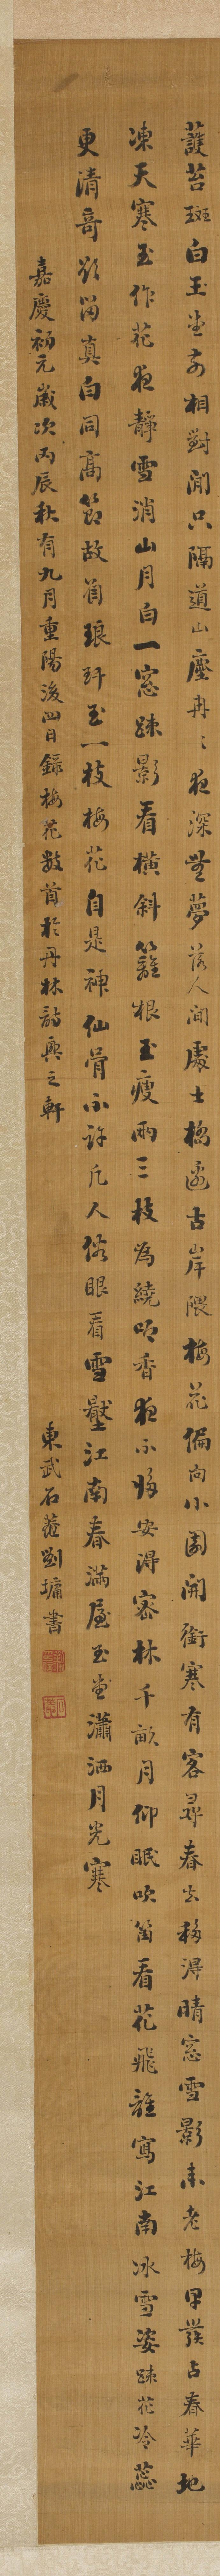 護苔斑白玉堂前相對閒只隔道山塵冉〻夜深無夢落人間處士橋邊古岸隈梅花偏向小園開銜寒有客尋春去移得晴窓雪影來老梅早發占春華地
凍天寒玉作花夜靜雪消山月白一窓疎影看橫斜籬根玉瘦兩三枝為繞吟香夜不歸安得密林千畝月仰眠吹笛看花飛誰寫江南冰雪姿疎花冷蕊
更清奇欲留真白同高節故寫琅玕玉一枝梅花自是神仙骨不許凡人俗眼看雪壓江南春滿屋玉堂瀟洒月光寒
嘉慶初元歲次丙辰秋有九月重陽後四日錄梅花數首於丹林詩興之軒
東武石菴劉墉書